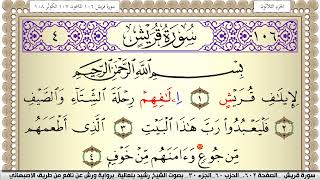 سورة قريش ١٠٦ الماعون ١٠٧ الكوثر ١٠٨
الجزء الثلاثون
١٠٦ سُورَةُ قُرَيْشٍ ٤
بِسْمِ اللَّهِ الرَّحْمَٰنِ الرَّحِيمِ
لِإِيلَٰفِ قُرَيْشٍ ١ إِۦلَٰفِهِمْ رِحْلَةَ الشِّتَآءِ وَالصَّيْفِ
٢ فَلْيَعْبُدُوا رَبَّ هَٰذَا الْبَيْتِ ٣ الَّذِي أَطْعَمَهُم
مِّن جُوعٍ وَءَامَنَهُم مِّنْ خَوْفٍ ٤
سورة قريش - الصفحة ٦٠٢ - الحزب ٦٠ - الجزء ٣٠ - بصوت الشيخ رشيد بنعالية - برواية ورش عن نافع من طريق الاصبهاني